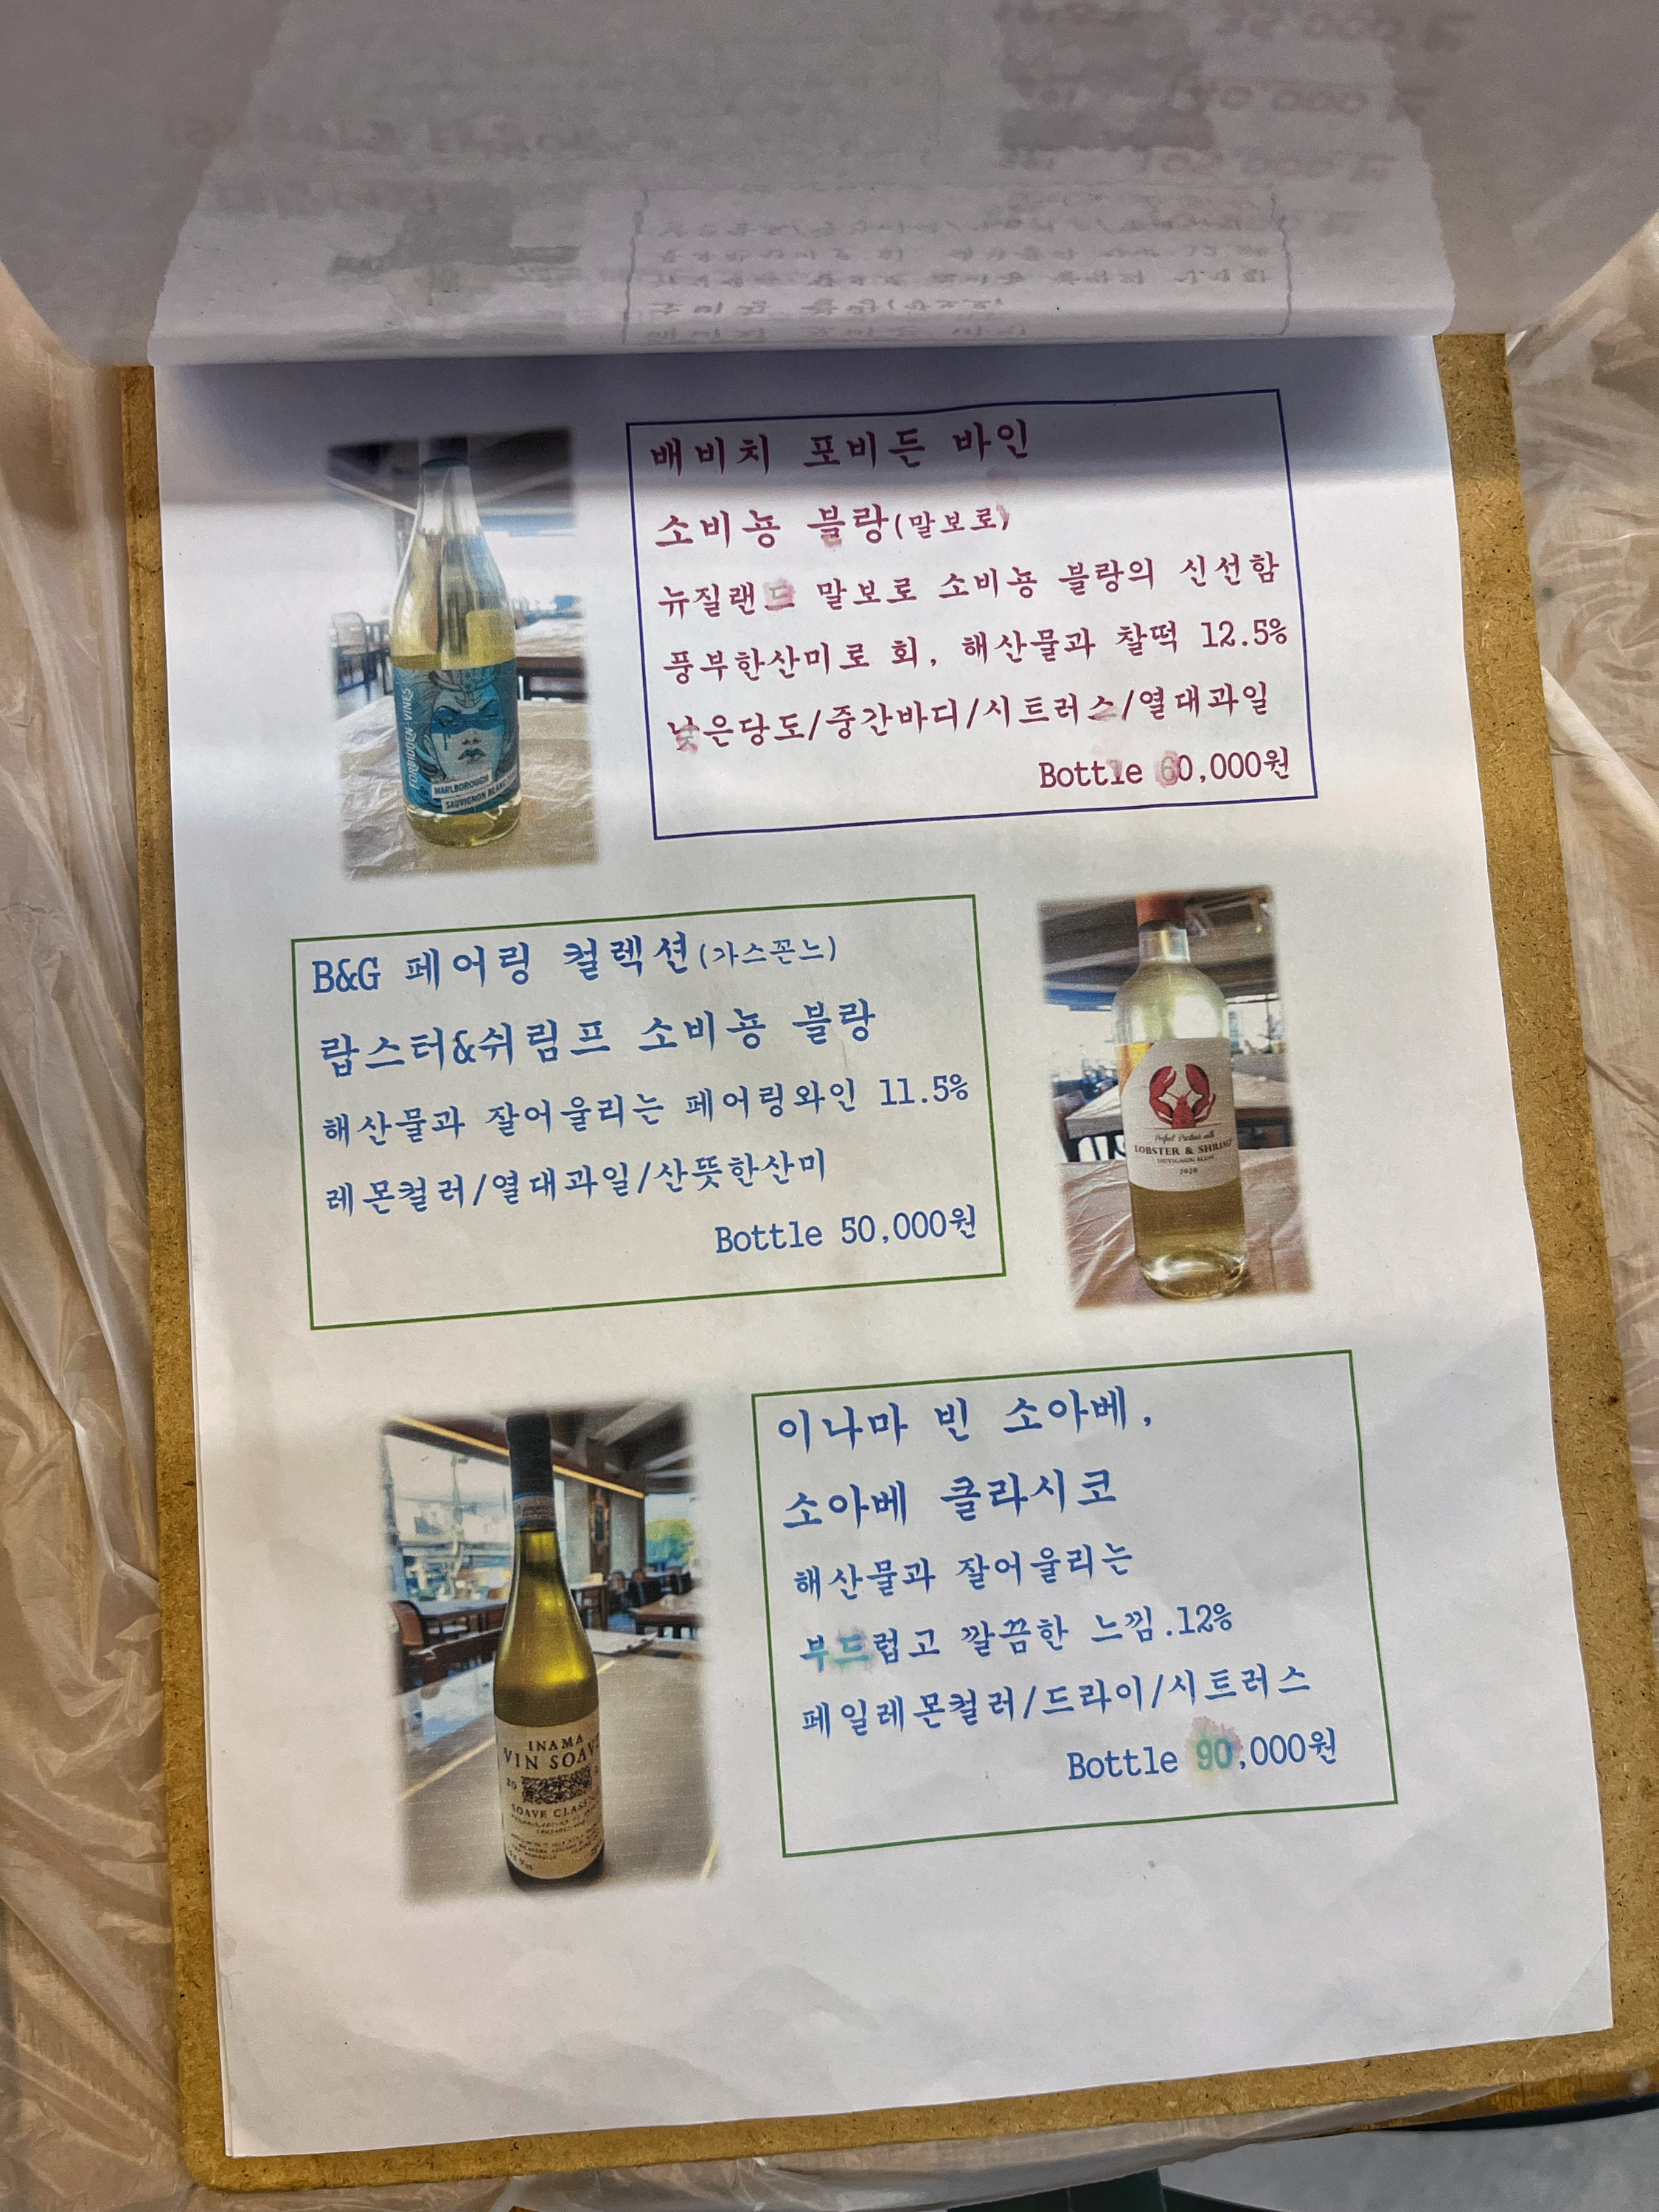 배비치 포비든 바인
소비뇽 블랑(말보로)
뉴질랜드 말보로 소비뇽 블랑의 신선함
풍부한산미로 회, 해산물과 찰떡 12.5%
낮은당도/중간바디/시트러스/열대과일
Bottle 60,000원
FORBIDDEN VINES
MARLBOROUGH
SAUVIGNON BLANC
B&G 페어링 컬렉션(가스꼰느)
랍스터&쉬림프 소비뇽 블랑
해산물과 잘어울리는 페어링와인 11.5%
레몬컬러/열대과일/산뜻한산미
Bottle 50,000원
Perfect Partner with
LOBSTER & SHRIMP
SAUVIGNON BLANC
2020
이나마 빈 소아베,
소아베 클라시코
해산물과 잘어울리는
부드럽고 깔끔한 느낌.12%
페일레몬컬러/드라이/시트러스
Bottle 90,000원
INAMA
VIN SOAVE
20
SOAVE CLASS